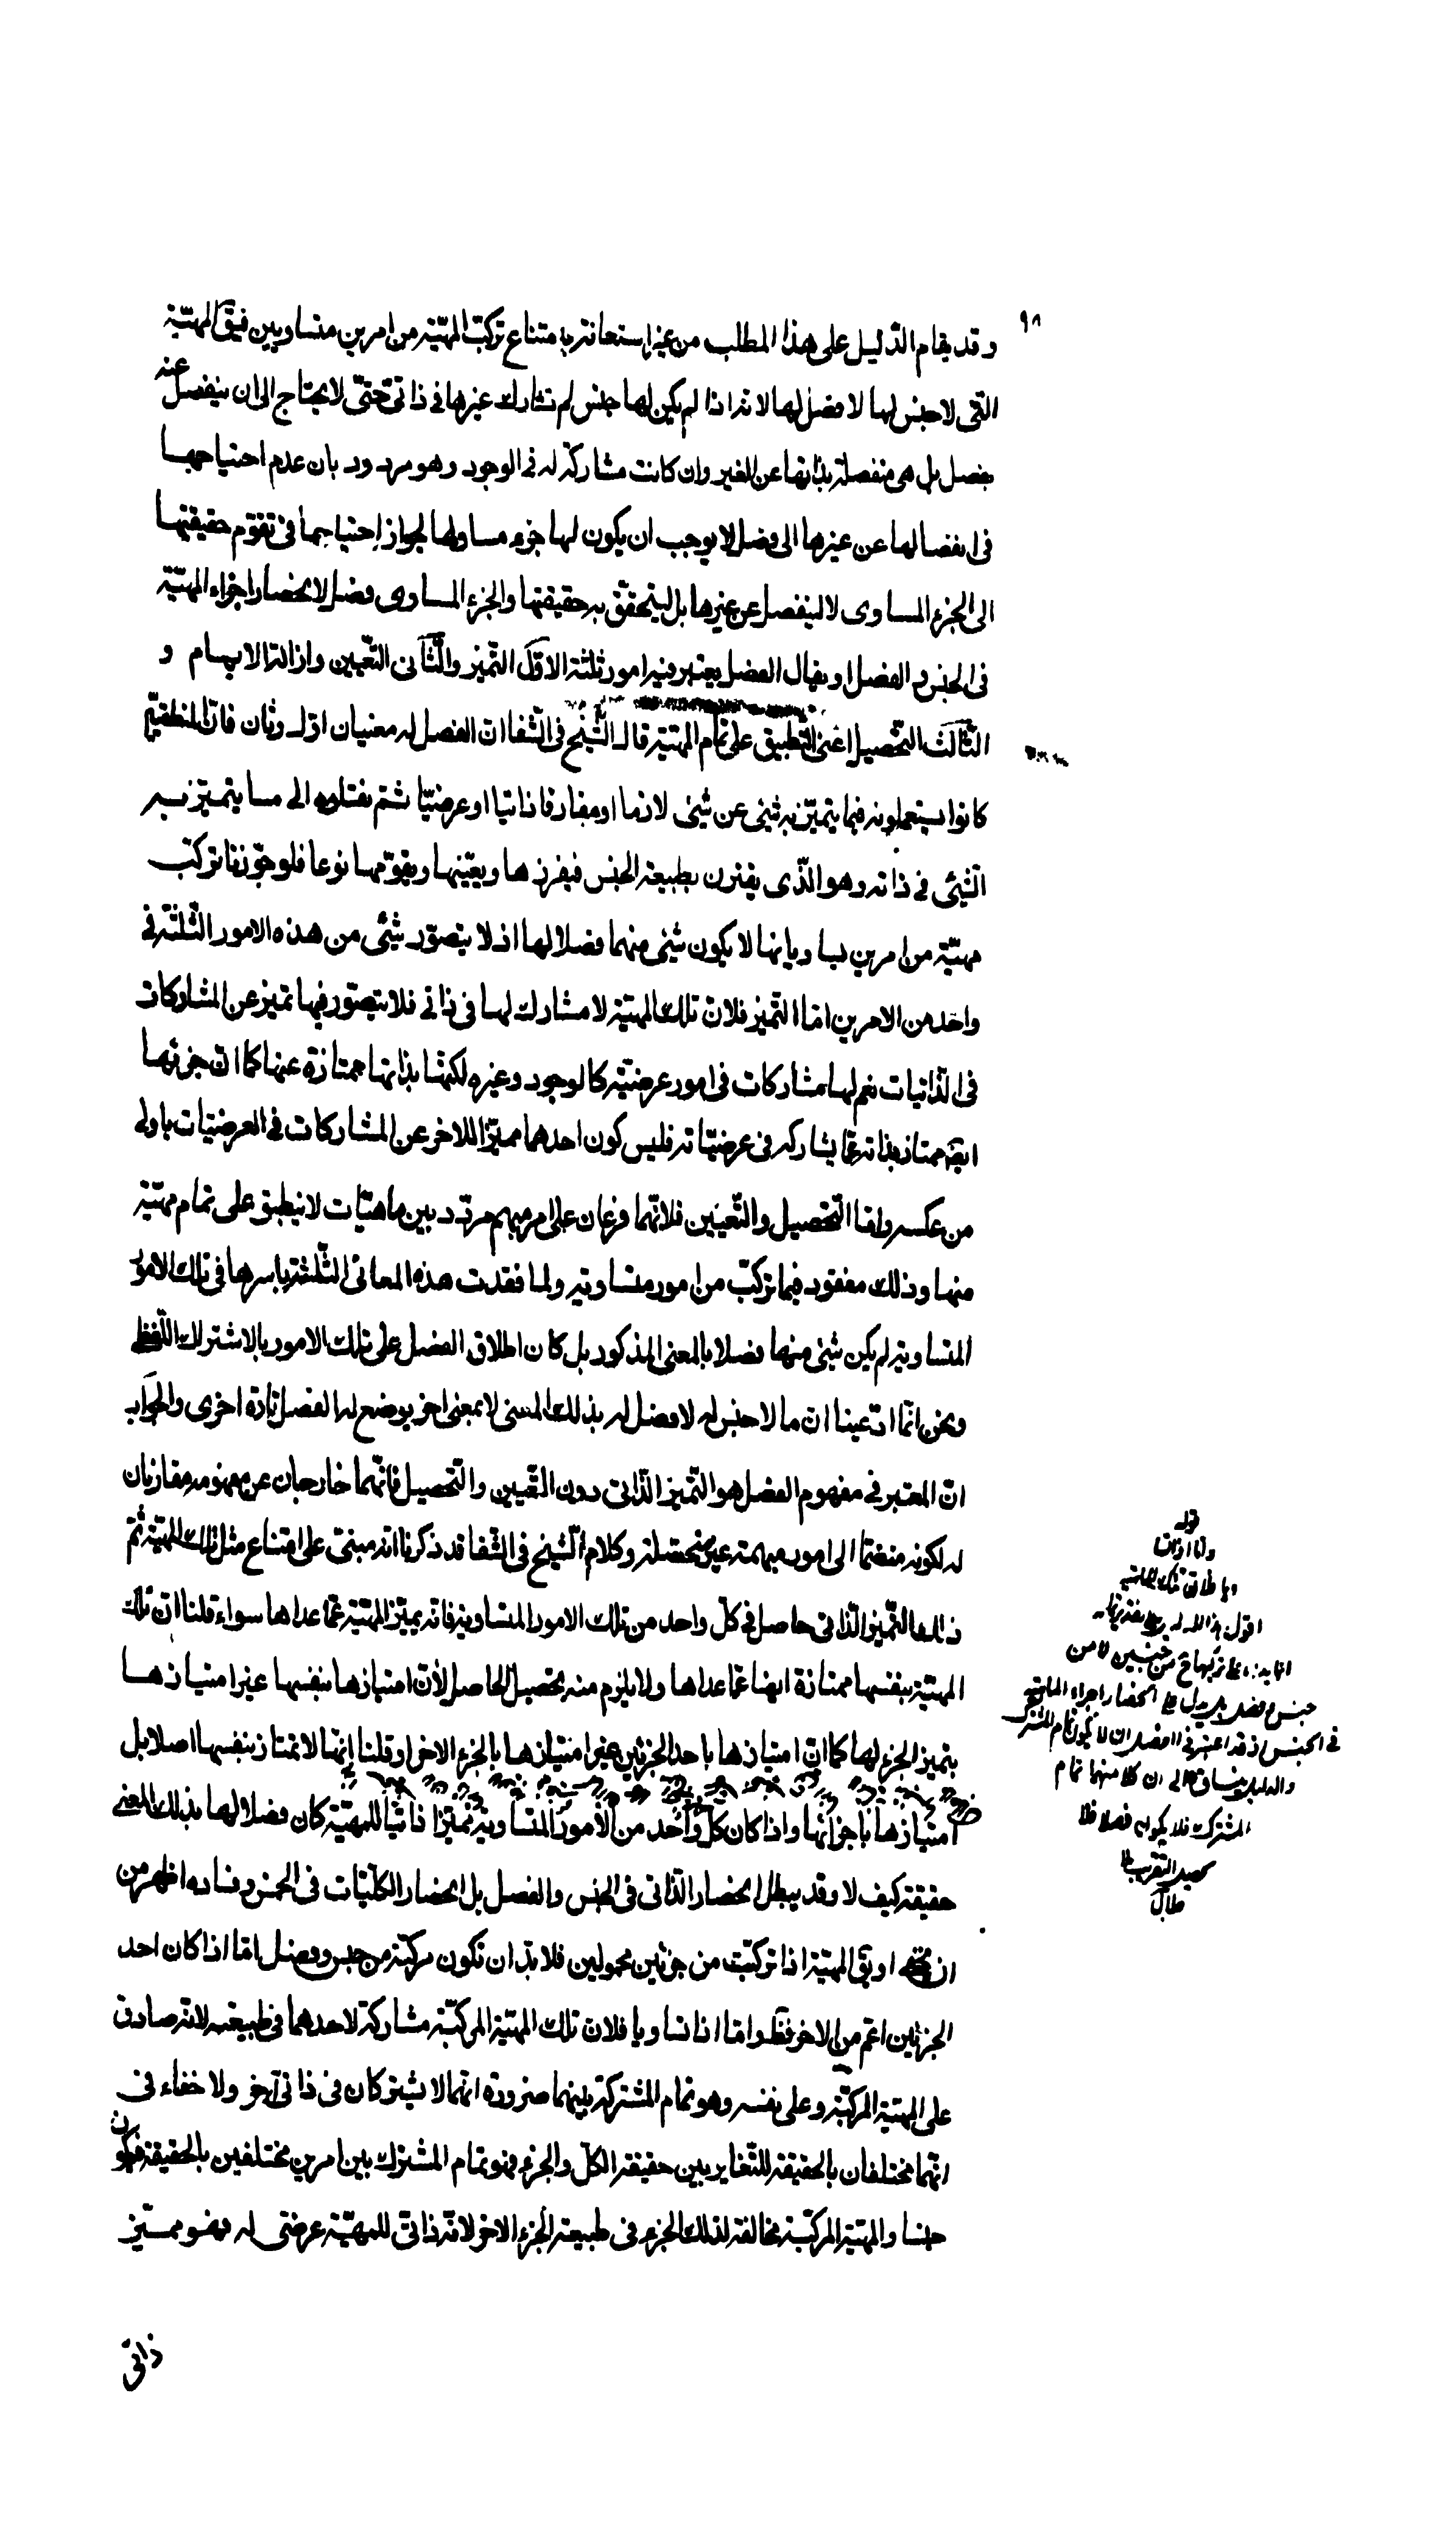 ٩٨
وقد يقام الدّليل على هذا المطلب من غير استعانة بامتناع تركّب المهيّة من امرين متساويين فيق المهيّة
التى لا جنس لها لا فصل لها لانه اذا لم يكن لها جنس لم تشارك غيرها فى ذاتىّ حتىّ لا يحتاج الى ان ينفصل عنه
بفصل بل هى منفصلة بذاتها عن الغير وان كانت مشاركة له فى الوجود وهو مردود بان عدم احتياجها
فى انفصالها عن غيرها الى فصل لا يوجب ان يكون لها جزء مساو لها لجواز احتياجها فى تقوّم حقيقتها
الى الجزء المساوى لا لينفصل عن غيرها بل ليتحقّق به حقيقتها والجزء المساوى فصل لانحصار اجزاء المهيّة
فى الجنس والفصل او يقال الفصل يعتبر فيه امور ثلثة الاوّل التّميز والثّانى التّعيين وازالة الابهام و
الثّالث التّحصيل اعنى التّطبيق على تمام المهيّة قال الشّيخ فى الشّفا انّ الفصل له معنيان اوّل وثان فانّ المنطقيّين
كانوا يستعملونه فيما يتميّز به شئ عن شئ لازما او مفارقا ذاتيا او عرضيّا ثمّ نقلوه الى ما يتميّز به
الشّئ فى ذاته وهو الذّى يقترن بطبيعة الجنس فيفرزها ويعيّنها ويقوّمها نوعا فلو جوّزنا تركّب
مهيّة من امرين يساويانها لا يكون شئ منهما فصلا لها اذ لا يتصوّر شئ من هذه الامور الثّلثة فى
واحد من الامرين امّا التّميز فلانّ تلك المهيّة لا مشارك لها فى ذاتى فلا يتصوّر فيها تميز عن المشاركات
فى الذّاتيات نعم لها مشاركات فى امور عرضيّة كالوجود وغيره لكنّها بذاتها ممتازة عنها كما انّ جزئها
ايضا ممتاز بذاته عمّا يشاركه فى عرضيّاته فليس كون احدهما مميّزا للاخر عن المشاركات فى العرضيّات باولى
من عكسه وامّا التّحصيل والتّعيين فلانّهما فرعان على امر مبهم مردّد بين ماهيّات لا ينطبق على تمام مهيّة
منها وذلك مفقود فيما تركّب من امور متساوية ولما فقدت هذه المعانى الثّلثة باسرها فى تلك الامور
المتساوية لم يكن شئ منها فصلا بالمعنى المذكور بل كان اطلاق الفصل على تلك الامور بالاشتراك اللّفظى
ونحن انّما ادّعينا انّ ما لا جنس له لا فصل له بذلك المعنى لا بمعنى اخر يوضع له الفصل تارة اخرى والجواب
انّ المعتبر فى مفهوم الفصل هو التّميز الذّاتى دون التّعيين والتّحصيل فانّهما خارجان عن مفهومه مقارنان
له لكونه منضمّا الى امور مبهمة غير متحصّلة وكلام الشّيخ فى الشّفا قد ذكرنا انّه مبنىّ على امتناع مثل تلك المهيّة ثمّ
ذلك التّميز الذّاتى حاصل فى كلّ واحد من تلك الامور المتساوية فانّه يميّز المهيّة عمّا عداها سواء قلنا انّ تلك
المهيّة بنفسها ممتازة ايضا عمّا عداها ولا يلزم منه تحصيل الحاصل لانّ امتيازها بنفسها غير امتيازها
بتميز الجزء لها كما انّ امتيازها باحد الجزئين غير امتيازها بالجزء الاخر او قلنا إنّها لا تمتاز بنفسها اصلا بل
امتيازها باجزائها واذا كان كلّ واحد من الامور المتساوية مميّزا ذاتيّا للمهيّة كان فصلا لها بذلك المعنى
حقيقة كيف لا وقد يبطل انحصار الذّاتى فى الجنس والفصل بل انحصار الكلّيّات فى الخمس وفساده اظهر من
ان يخفى او يق المهيّة اذا تركّبت من جزئين محمولين فلا بدّ ان تكون مركّبة من جنس وفصل امّا اذا كان احد
الجزئين اعمّ من الاخر فظ وامّا اذا تساويا فلانّ تلك المهيّة المركّبة مشاركة لاحدهما فى طبيعته لانّه صادق
على المهيّة المركّبة وعلى نفسه وهو تمام المشترك بينهما ضرورة انّهما لا يشتركان فى ذاتى آخر ولا خفاء فى
انّهما مختلفان بالحقيقة للتّغاير بين حقيقة الكلّ والجزء فهو تمام المشترك بين امرين مختلفين بالحقيقة فيكون
جنسا والمهيّة المركّبة مخالفة لذلك الجزء فى طبيعة الجزء الاخر لانّه ذاتىّ للمهيّة عرضىّ له فهو مميّز
ذاتىّ
قوله
واما اذا تساويا
اقول هذا الدليل
من جنسين لا من
جنس وفصل بل يدل على انحصار اجزاء الماهية
فى الجنس اذ قد اعتبر فى الفصل ان لا يكون تمام المشترك
والدليل ينساق الى ان كلا منهما تمام
المشترك فلا يكون فصلا فلا
يحصل التقريب